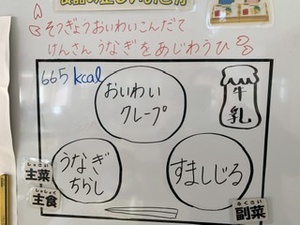 そつぎょうおいわいこんだて
けんさんうなぎをあじわうひ
665kcal
おいわい
クレープ
牛乳
うなぎ
ちらし
すましじる
しゅさい
主菜
しゅしょく
主食
ふくさい
副菜